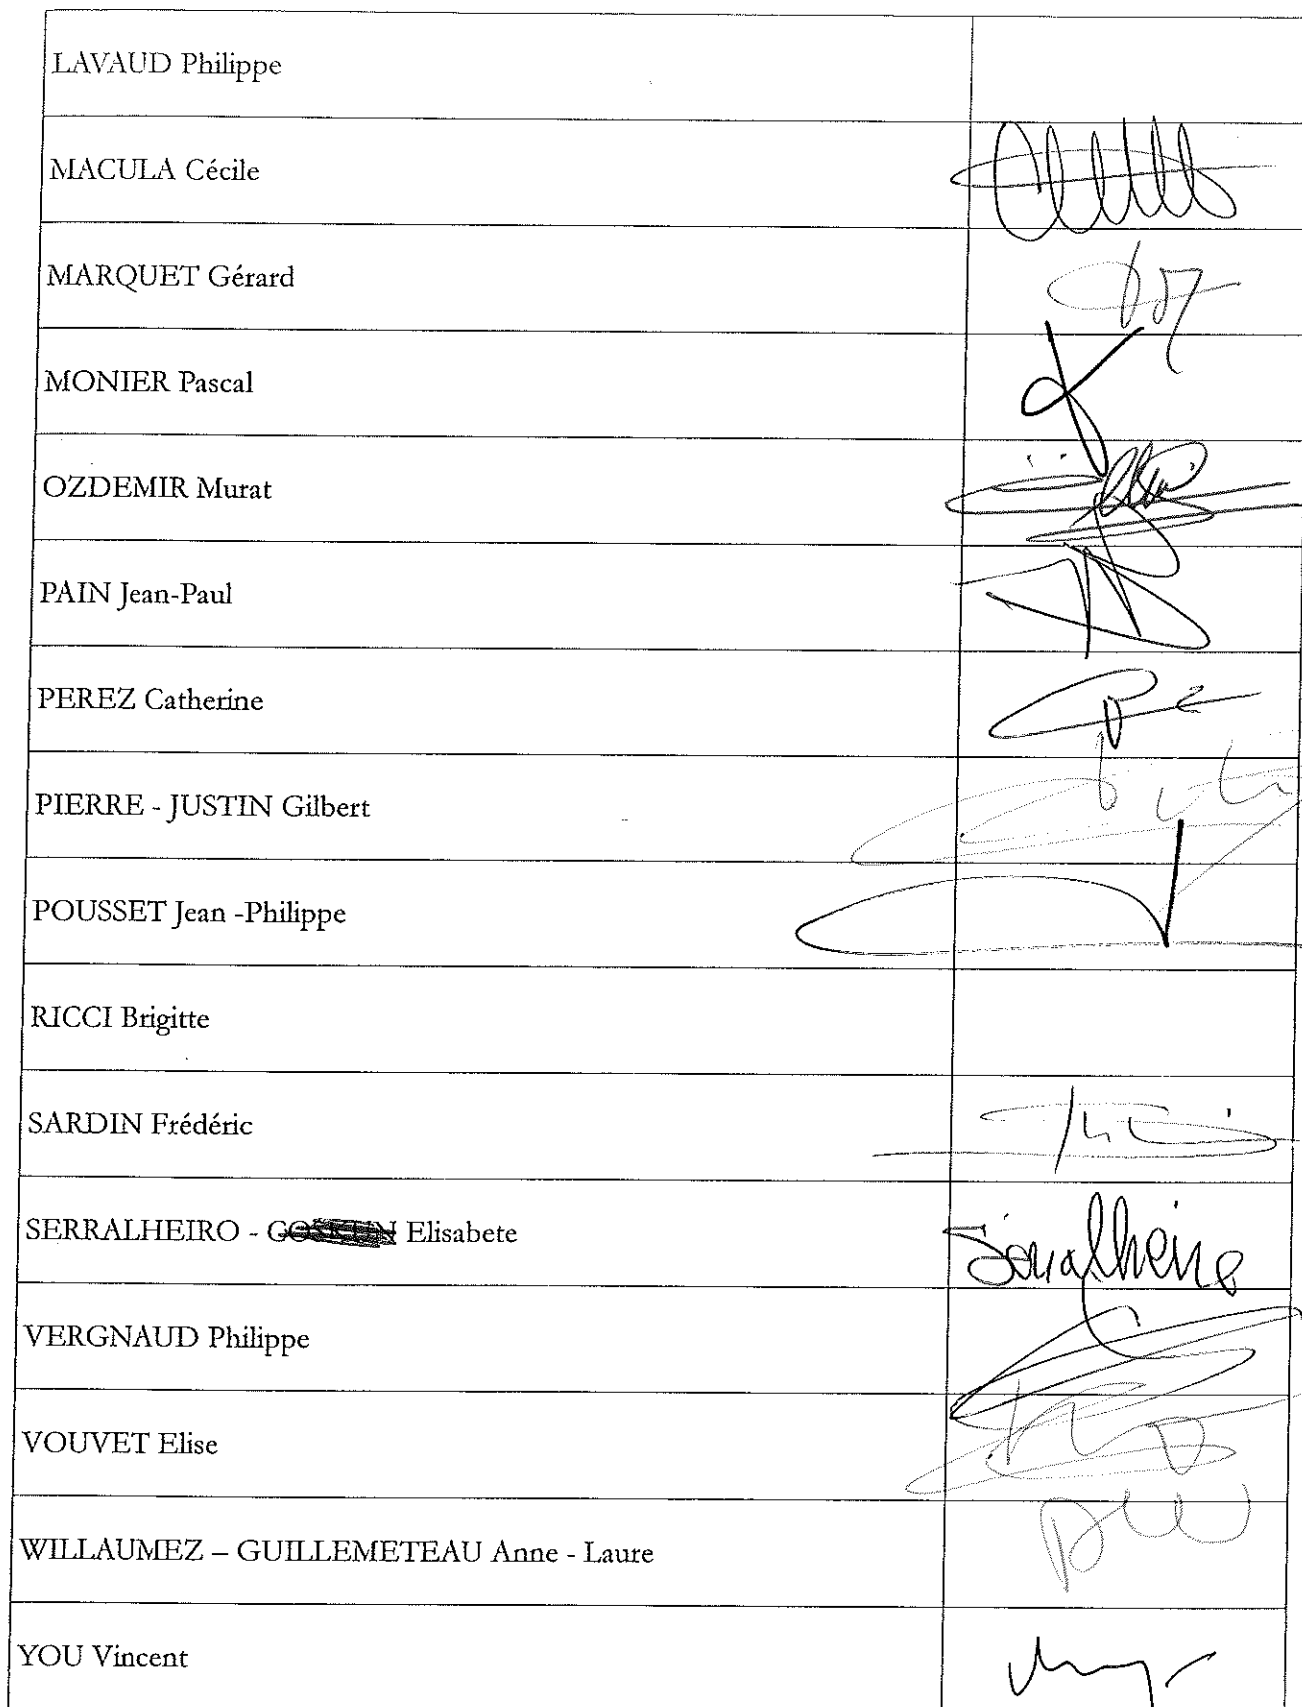 LAVAUD Philippe
MACULA Cécile
MARQUET Gérard
MONIER Pascal
OZDEMIR Murat
PAIN Jean-Paul
PEREZ Catherine
PIERRE - JUSTIN Gilbert
POUSSET Jean -Philippe
RICCI Brigitte
SARDIN Frédéric
SERRALHEIRO - Elisabete
VERGNAUD Philippe
VOUVET Elise
WILLAUMEZ – GUILLEMETEAU Anne - Laure
YOU Vincent